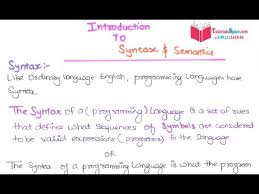 Introduction
TO
Syntax & Semantics
TutorialsSpace.com
Syntax:-
Like Ordinary language English, programming Languages have
Syntax.
The Syntax of a (programming) Language is a set of rules
that define what sequences of symbols are considered
to be valid expressions (programs) in the Language
OR
The Syntax of a programming Language is what the program